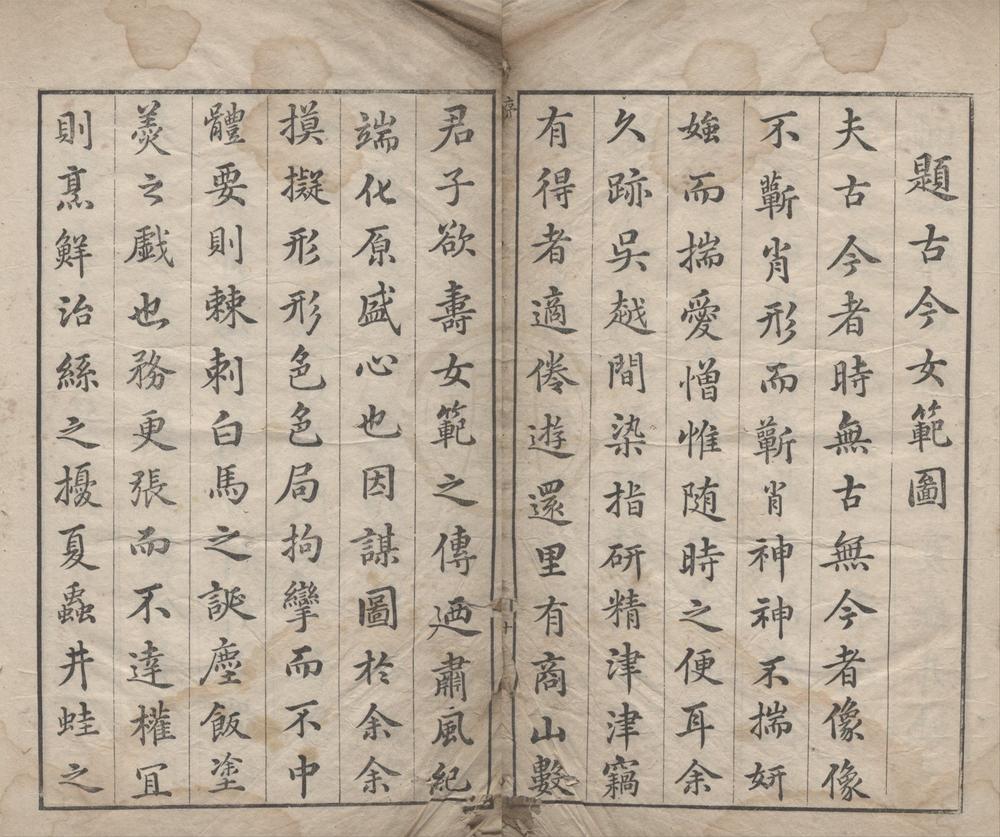 題古今女範圖
夫古今者時無古無今者像像
不蘄肖形而蘄肖神神不揣妍
媸而揣愛憎惟随時之便耳余
久跡吳越間染指研精津津竊
有得者適倦遊還里有商山數
君子欲壽女範之傳廼肅風紀
端化原盛心也因謀圖於余余
摸擬形形色色局拘攣而不中
體要則棘刺白馬之誕塵飯塗
羮之戲也務更張而不達權宜
則烹鮮治絲之擾夏蟲井蛙之
序
十